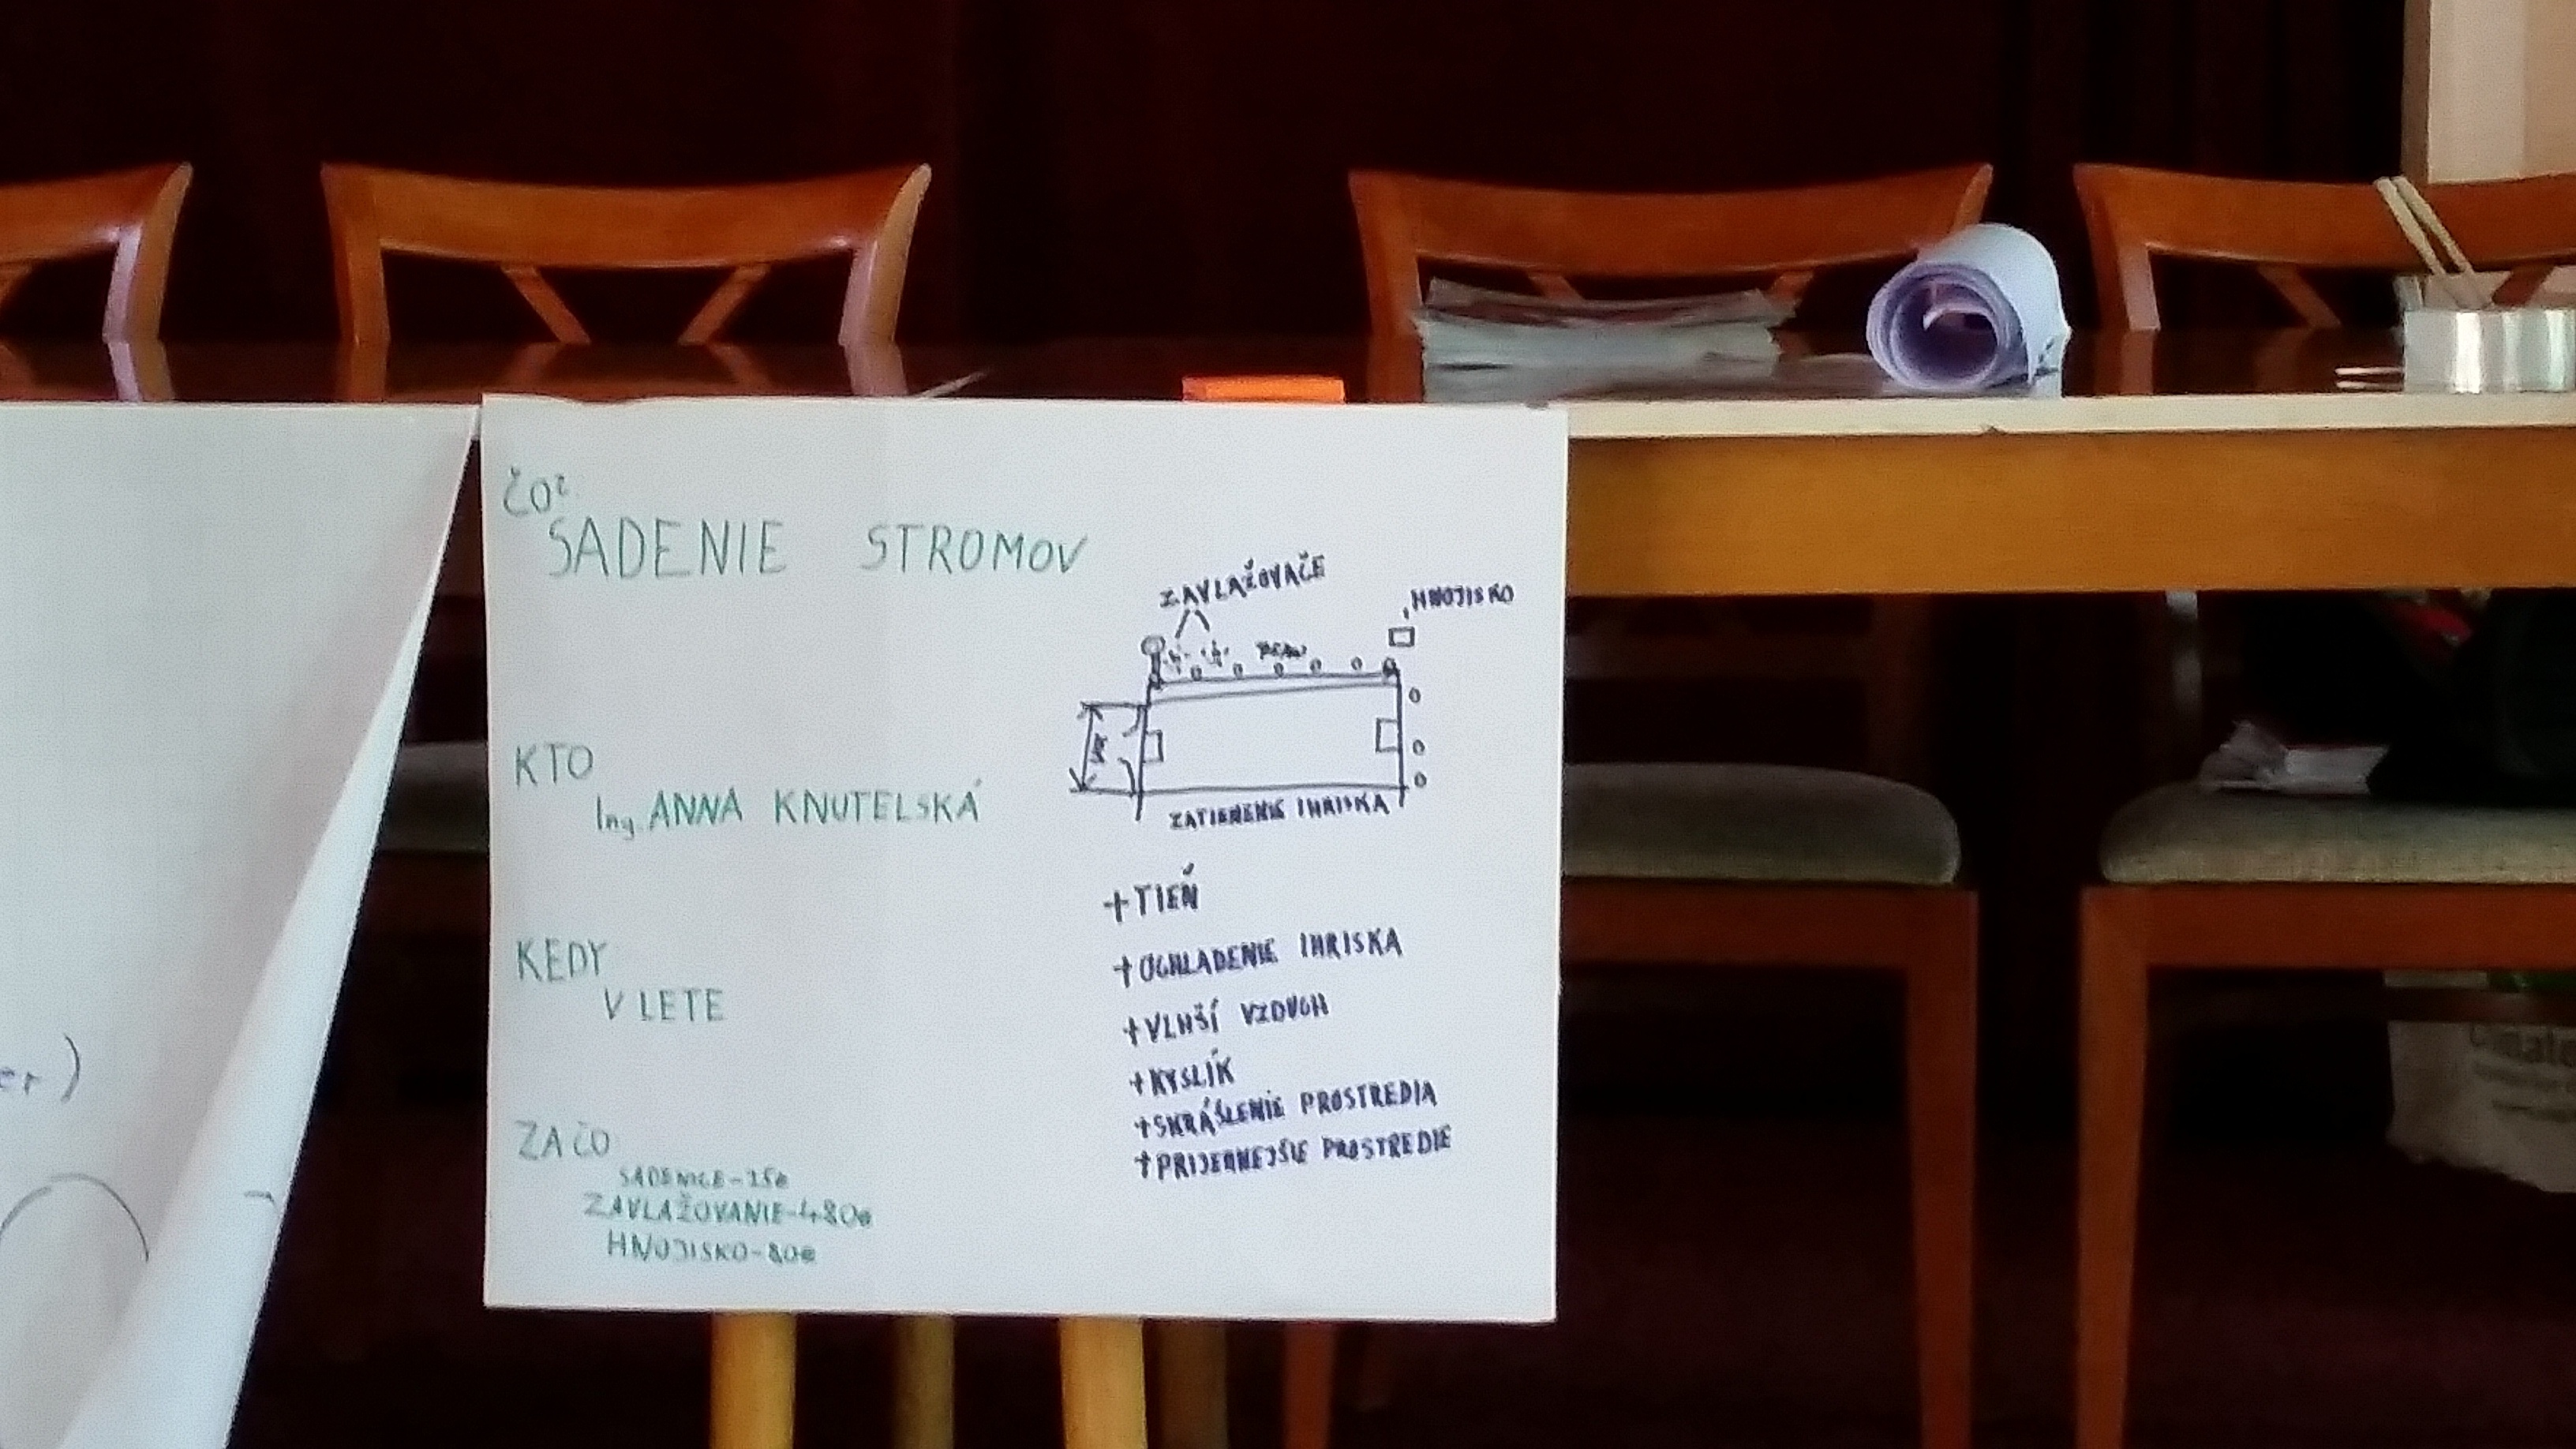 ČO?
SADENIE STROMOV
KTO
Ing. ANNA KNUTELSKÁ
KEDY
V LETE
ZA ČO
SADENICE-15€
ZAVLAŽOVANIE-480€
HNOJISKO-80€
ZAVLAŽOVAČE
HNOJISKO
ZATIENENIE IHRISKA
+TIEŇ
+OCHLADENIE IHRISKA
+VLHŠÍ VZDUCH
+KYSLÍK
+SKRÁŠLENIE PROSTREDIA
+PRIJEMNEJŠIE PROSTREDIE
er)